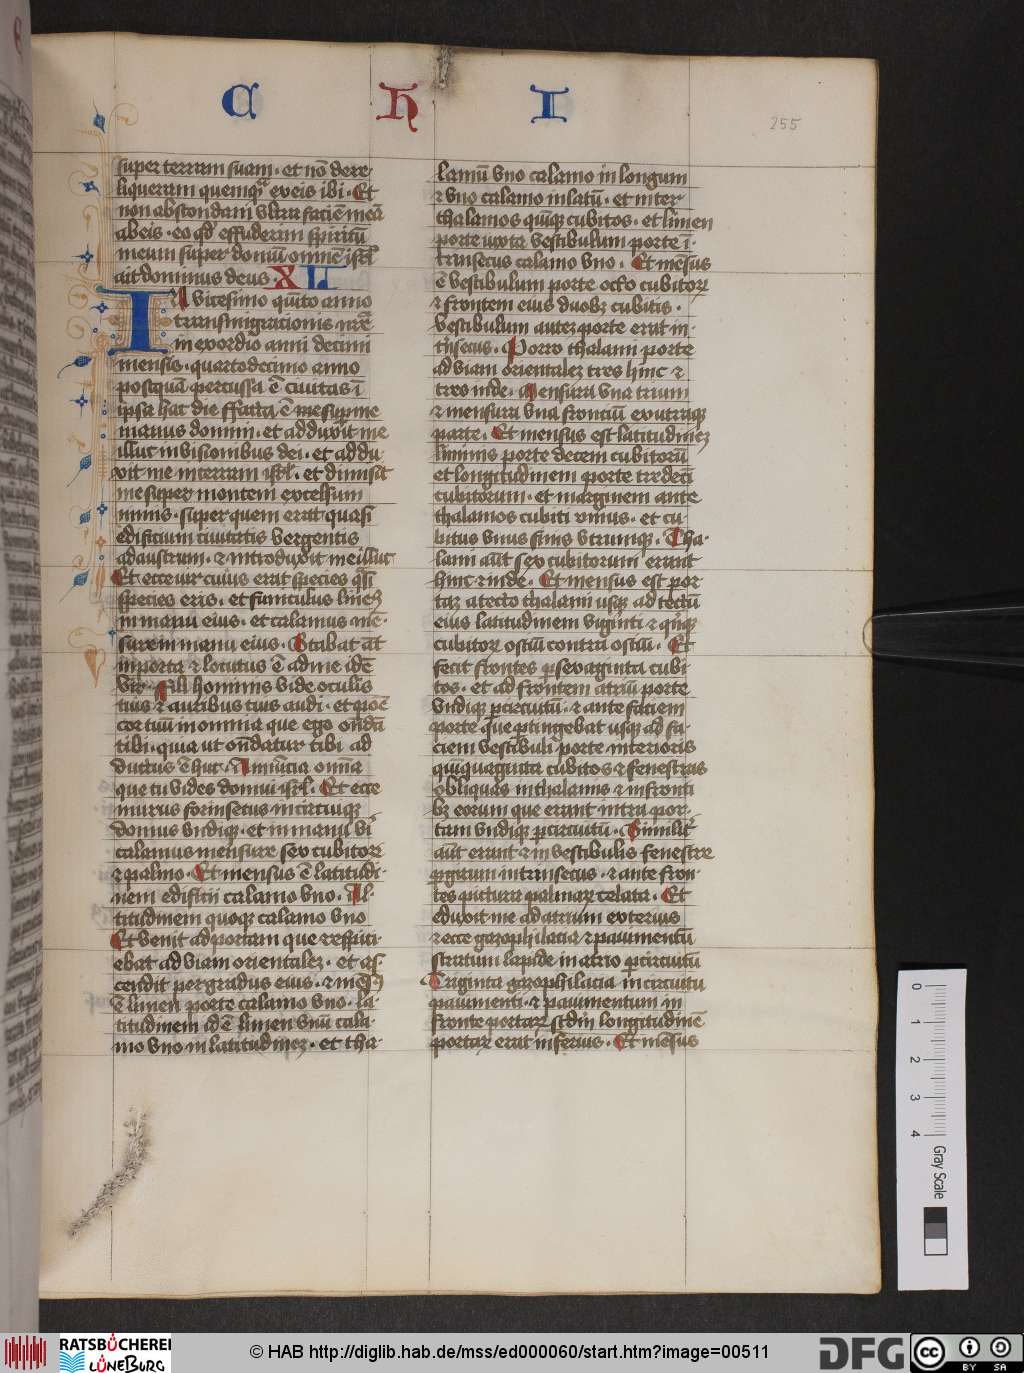 C H I
255
super terram suam · et nō dere-
liqueram quemq̄ȝ ex eis ibi · Et
non abscondam vltra faciē meā
ab eis · eo qd' effuderim spiritū
meum super domū omnē isrl'
ait dominus deus · XL
In vicesimo quīto anno
transmigrationis nr̄e
in exordio anni decima
mensis · quartodecimo anno
postquā percussa ē ciuitas ī
ipsa hac die fc̄a ē me sup̄ me
manus domini · et adduxit me
illuc in visionibus dei · et addu-
xit me in terram isrl' · et dimisit
me super montem excelsum
nimis · super quem erat quasi
edificium ciuitatis vergentis
ad austrum · ⁊ introduxit me illuc
Et ecce vir cuius erat species q̄si
species eris · et funiculus lineꝫ
in manu eius · et calamus mē-
sure in manu eius · Stabat aūt
in porta ⁊ locutus ē ad me idē
vir · Fili hominis vide oculis
tuis ⁊ auribus tuis audi · et pōe
cor tuū in omnia que ego ondā
tibi · quia ut ondatur tibi ad
ductus ē huc · Annūcia omīa
que tu vides domui isrl' · Et ecce
murus forinsecus in circuiꝗꝫ
domus vndiqꝫ · et in manu vi
calamus mensure sex cubitoꝝ
⁊ palmo · Et mensus ē latitudi-
nem edificii calamo vno · Al-
titudinem quoqꝫ calamo vno
Et venit ad portam que respici-
ebat ad viam orientaleꝫ · et as-
cendit per gradus eius · ⁊ mēsꝯ
ē limen porte calamo vno · la-
titudinem id ē limen vnū cala-
mo vno in latitudineꝫ · et tha-
lamū vno calamo in longum
⁊ vno calamo in latū · et inter
thalamos quīqꝫ cubitos · et limen
porte iuxta vestibulum porte ī-
trinsecus calamo vno · Et mēsus
ē vestibulum porte octo cubitoꝝ
⁊ frontem eius duobꝫ cubitis ·
vestibulum auteꝫ porte erat in-
trīsecus · Porro thalami porte
ad viam orientaleꝫ tres hinc ⁊
tres inde · Mensura vna trium
⁊ mensura vna frontiū ex utraqꝫ
parte · Et mensus est latitudineꝫ
liminis porte decem cubitorū
et longitudinem porte tredecī
cubitorum · et marginem ante
thalamos cubiti vnius · et cu-
bitus vnius finis vtrimqꝫ · Tha-
lami aūt sex cubitorum erant
hinc ⁊ inde · Et mensus est por-
taꝫ a tecto thalami usqꝫ ad tectū
eius latitudinem viginti ⁊ qnqꝫ
cubitoꝝ ostiū contra ostiū · Et
fecit frontes p̲ sexaginta cubi
tos · et ad frontem atriū porte
vndiqꝫ p̲ circuitū · ⁊ ante faciem
porte que p̲tingebat usqꝫ ad fa-
ciem vestibuli porte interioris
quīquaginta cubitos ⁊ fenestras
obliquas in thalamis ⁊ in fronti
bꝫ eorum que erant intra por-
tam vndiqꝫ p̲ circuitū · Similit'
aūt erant ⁊ in vestibulis fenestre
p̲ girum intrinsecus · ⁊ ante fron-
tes pictura palmaꝝ celata · Et
eduxit me ad atrium exterius
⁊ ecce gazophilacia ⁊ pauimentū
stratum lapide in atrio p̲ circuitū
Triginta gazophilacia in circuitu
pauimenti · ⁊ pauimentum in
fronte portaꝝ scdm longitudinē
portaꝝ erat inferius · Et mēsus
0 1 2 3 4 Gray Scale
RATSBÜCHEREI LÜNEBURG
© HAB http://diglib.hab.de/mss/ed000060/start.htm?image=00511
DFG
cc BY SA